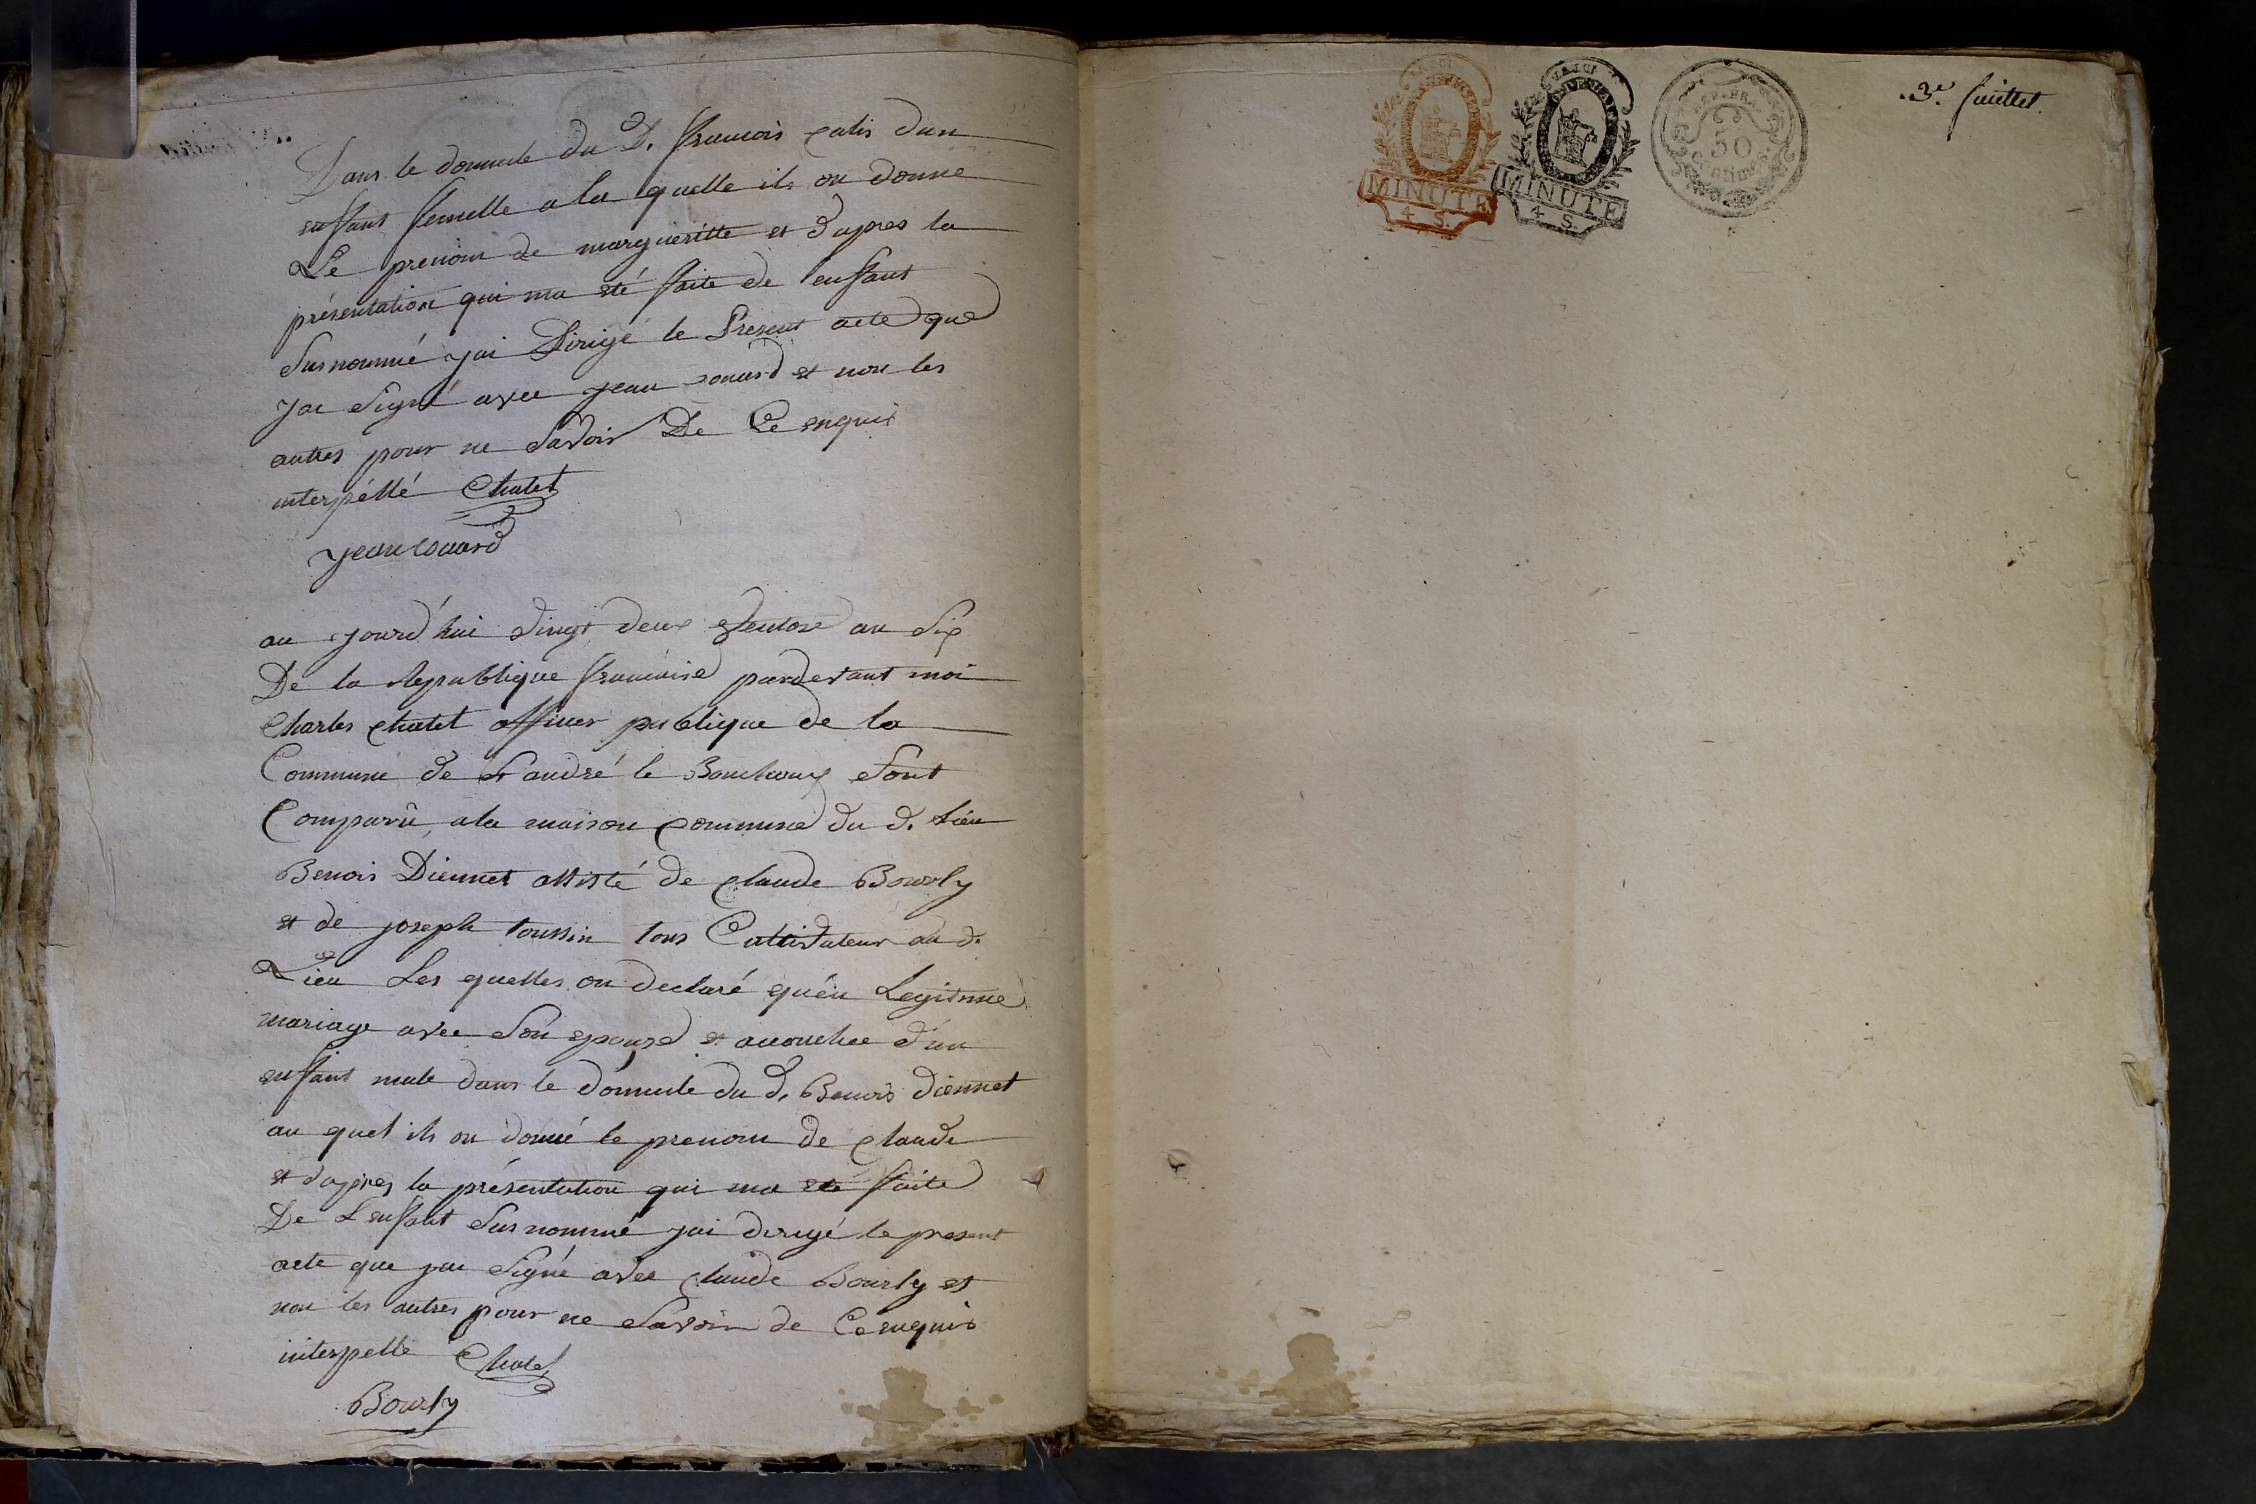 Dans le domicile du D. francois calis dun
enffant femelle a la quelle ils on donné
Le prenom de margueritte et d'apres la
présentation qui ma été faite de l'enffant
Susnommé jai Dirigé le Present acte que
jai Signé avec jean conard et non les
autres pour ne Savoir De Ce enquis
interpéllé Chatel
jean Couard
au jourd'hui Vingt deux Ventose an Six
De la Republique francaise pardevant moi
Charles Chatel officier publique de la
Commune de St andré le Bouchoux Sont
Comparû, a la maison commune du d. lieu
Benois Diennet assisté de Claude Bourly
et de joseph toussin tous Cultivateur du d.
Lieu Les quelles on declaré qu'en Legitime
mariage avec Son epouse et accouchee d'un
enffant male dans le domicile du d. Benois diennet
au quel ils on donné le prenom de Claude
et dapres la présentation qui ma été faite
De L'enffant Susnommé jai dirigé le present
acte que jai Signé avec Claude Bourly et
non les autres pour ne Savoir de Ce enquis
interpellé Chatel
Bourly
3e. fuillet.
MINUTE
4 S.
MINUTE
4 S.
REP. FRA.
50
Centimes.